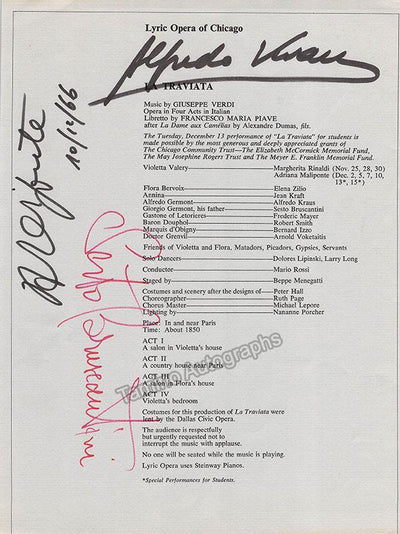 Lyric Opera of Chicago
Alfredo Kraus
LA TRAVIATA
Music by GIUSEPPE VERDI
Opera in Four Acts in Italian
Libretto by FRANCESCO MARIA PIAVE
after La Dame aux Camélias by Alexandre Dumas, fils.
The Tuesday, December 13 performance of "La Traviata" for students is
made possible by the most generous and deeply appreciated grants of
The Chicago Community Trust—The Elizabeth McCormick Memorial Fund,
The May Josephine Rogers Trust and The Meyer E. Franklin Memorial Fund.
Violetta Valery Margherita Rinaldi (Nov. 25, 28, 30)
Adriana Maliponte (Dec. 2, 5, 7, 10,
13*, 15*)
Flora Bervoix Elena Zilio
Annina Jean Kraft
Alfredo Germont Alfredo Kraus
Giorgio Germont, his father Sesto Bruscantini
Gastone of Letorieres Frederic Mayer
Baron Douphol Robert Smith
Marquis d'Obigny Bernard Izzo
Doctor Grenvil Arnold Voketaitis
Friends of Violetta and Flora, Matadors, Picadors, Gypsies, Servants
Solo Dancers Dolores Lipinski, Larry Long
Conductor Mario Rossi
Staged by Beppe Menegatti
Costumes and scenery after the designs of Peter Hall
Choreographer Ruth Page
Chorus Master Michael Lepore
Lighting by Nananne Porcher
Place: In and near Paris
Time: About 1850
ACT I
A salon in Violetta's house
ACT II
A country house near Paris
ACT III
A salon in Flora's house
ACT IV
Violetta's bedroom
Costumes for this production of La Traviata were
lent by the Dallas Civic Opera.
The audience is respectfully
but urgently requested not to
interrupt the music with applause.
No one will be seated while the music is playing.
Lyric Opera uses Steinway Pianos.
*Special Performances for Students.
10/12/66
Sesto Bruscantini
Tamino Autographs